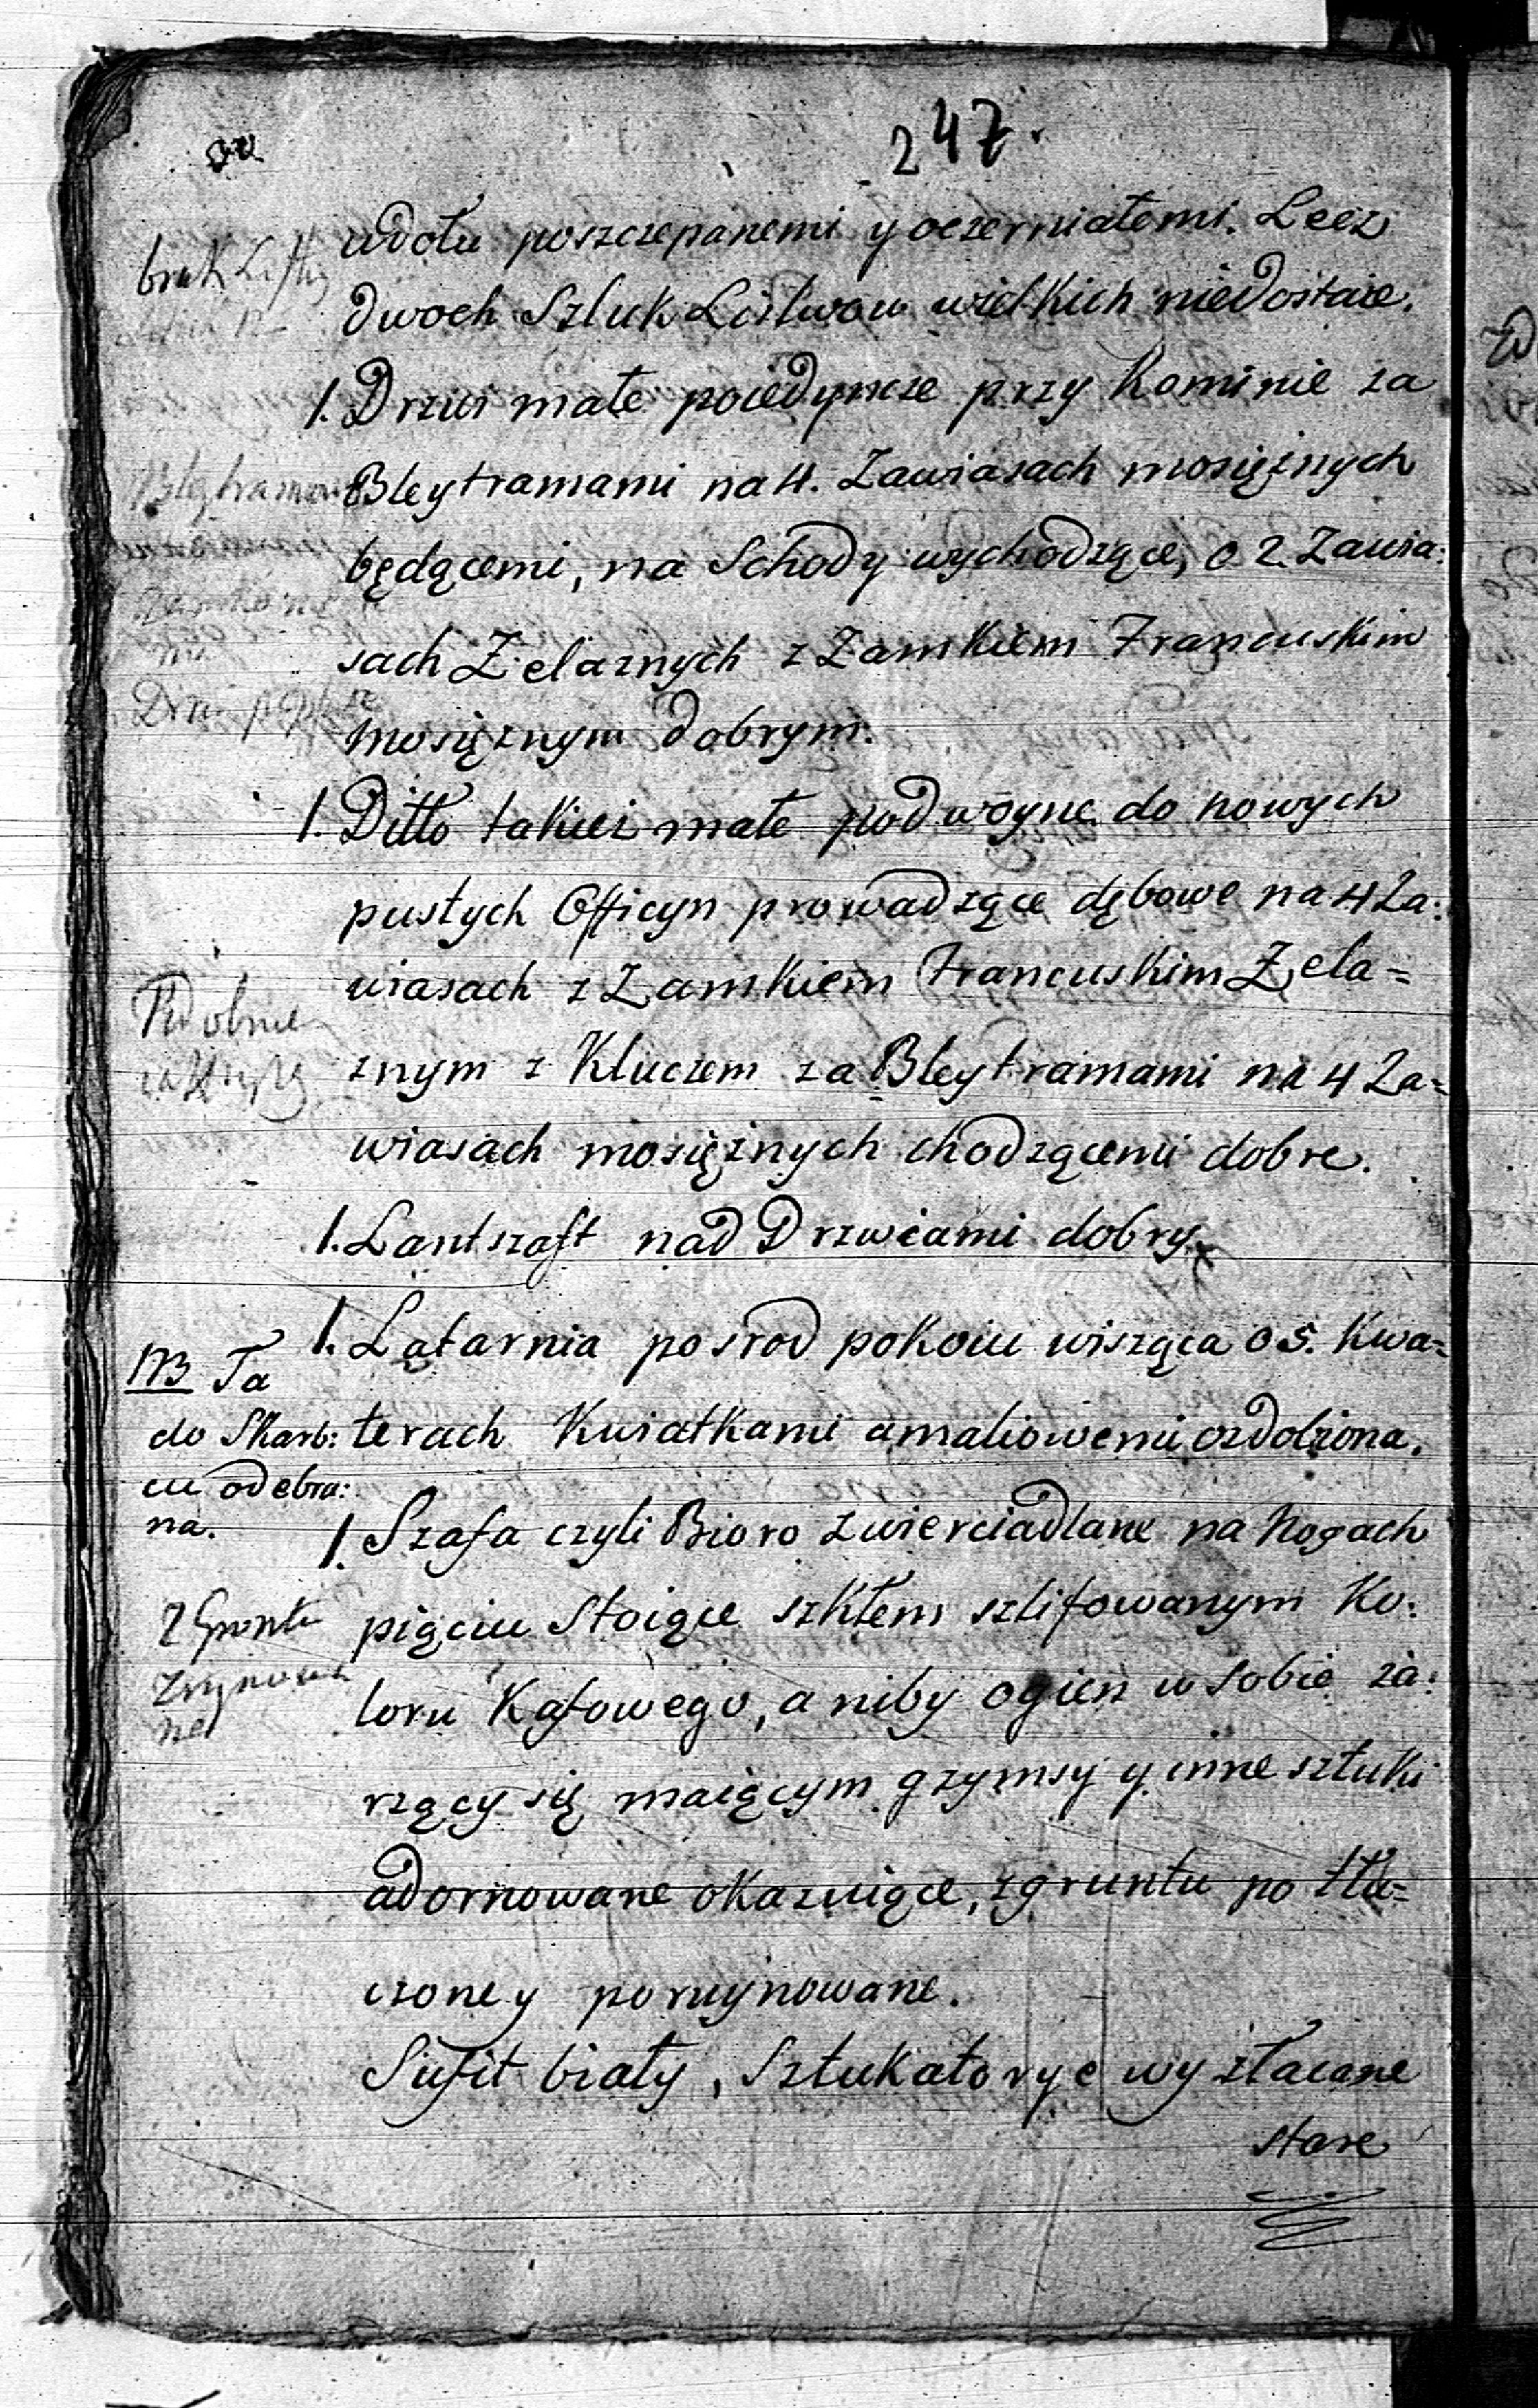 247.
wdołu poszczepanemi y oczerniałemi. Lecz
dwoch Sztuk Listwow wielkich niedostaie.
1. Drzwi małe poiedyncze przy Kominie za
Bleytramami na 4. Zawiasach mosiężnych
będącemi, na Schody wychodzące, o 2. Zawia:
sach Żelaznych z Zamkiem Francuskim
mosiężnym dobrym.
1. Ditto takież małe podwoyne do nowych
pustych Officyn prowadzące dębowe na 4 Za:
wiasach z Zamkiem Francuskim Żela=
znym z Kluczem za Bleytramami na 4 Za=
wiasach mosiężnych chodzącemi dobre.
1. Lantszaft nad Drzwiami dobry.
1. Latarnia posrod pokoiu wisząca o 5. Kwa=
terach Kwiatkami amaliowemi ozdobiona.
NB Ta
do Skarb:
cu odebra:
na.
1. Szafa czyli Bioro zwierciadlane na Nogach
pięciu Stoiące szkłem szlifowanym Ko:
loru Kafowego, a niby ogień w sobie ża:
rzący się maiącym gzymsy y inne sztuki
adornowane okazuiące, zgruntu potłu=
czone y poruynowane.
Z Gruntu
Zruynowa
ne
Sufit biały, Sztukatorye wyzłacane
stare
brak
Podobnie